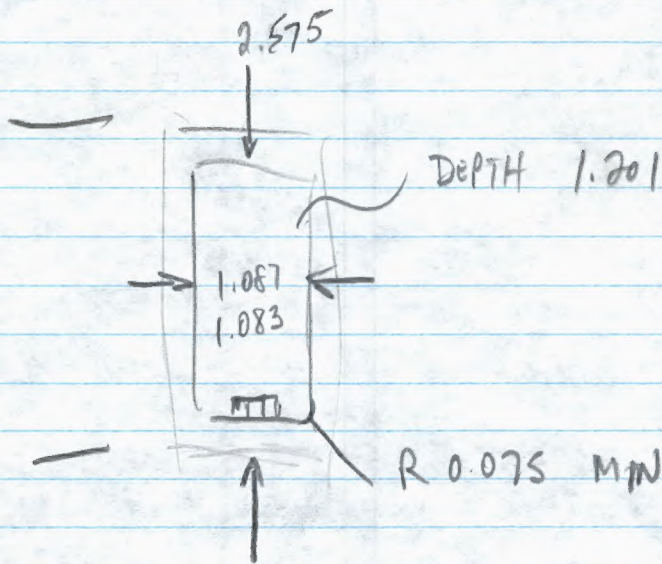 2.575
DEPTH 1.201
1.087
1.083
R 0.075 MIN